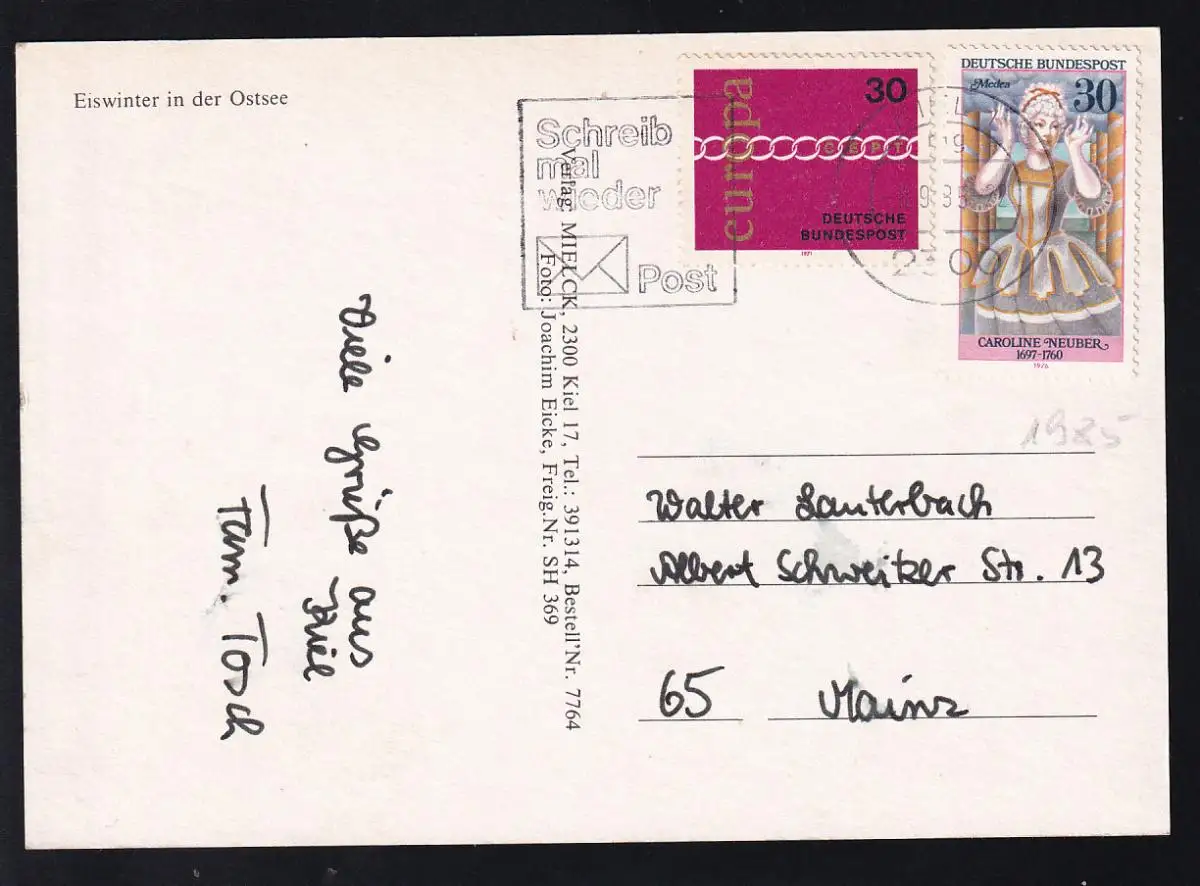 Eiswinter in der Ostsee
Schreib
mal
wieder
Post
europa
30
CEPT
DEUTSCHE
BUNDESPOST
1971
DEUTSCHE BUNDESPOST
Medea
30
CAROLINE NEUBER
1697-1760
1976
2300
1985
Verlag: MIELCK, 2300 Kiel 17, Tel.: 391314, Bestell'Nr. 7764
Foto: Joachim Eicke, Freig.Nr. SH 369
Viele Grüße aus
Kiel
Fam. Tosch
Walter Lauterbach
Albert Schweitzer Str. 13
65 Mainz